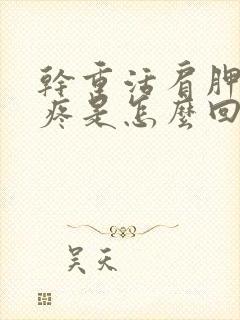 幹重活肩胛
疼是怎麼回
吴天